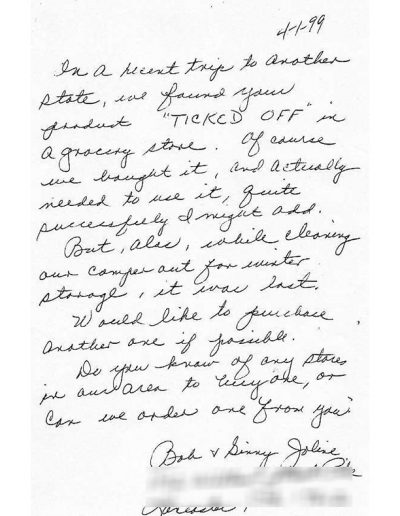 4-1-99
In a recent trip to another
state, we found your
product "TICKED OFF" in
a grocery store. Of course
we bought it, and actually
needed to use it, quite
successfully I might add.
But, alas, while cleaning
our camper out for winter
storage, it was lost.
Would like to purchase
another one if possible.
Do you know of any stores
in our area to buy one, or
can we order one from you?
Bob & Ginny Joline